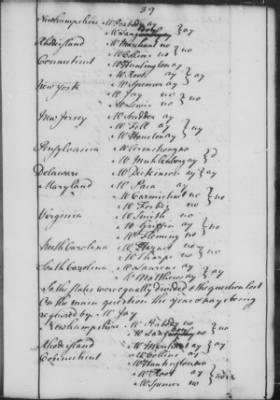 39
Newhampshire Mr Peabdy ay
Mr Langdon ay } ay
Rhode island Mr Marchant no } no
Mr Collins no
Connecticut Mr Huntington ay
Mr Root ay } ay
Mr Spencer ay
New York Mr Jay no } no
Mr Lewis no
New Jersey Mr
Mr Fell ay } ay
Mr Houston ay
Pensylvania Mr Armstrong no
Mr Muhlenberg ay } d
Delaware Mr Dickinson ay } ay
Maryland Mr Paca ay
Mr Carmichael no } no
Mr Forbes no
Virginia Mr Smith no
Mr Griffin ay } no
Mr Fleming no
North Carolina Mr no
Mr Sharpe no } no
South Carolina Mr Laurens ay
Mr Mathews ay } ay
So the states were equally divided & the question lost
On the main question the yeas & nays being
required by Mr Jay
Newhampshire Mr Peabdy no } no
Mr Langdon no
Rhode island Mr Marchant ay } ay
Mr Collins ay
Connecticut Mr Huntington no
Mr Root ay } no
Mr Spencer no